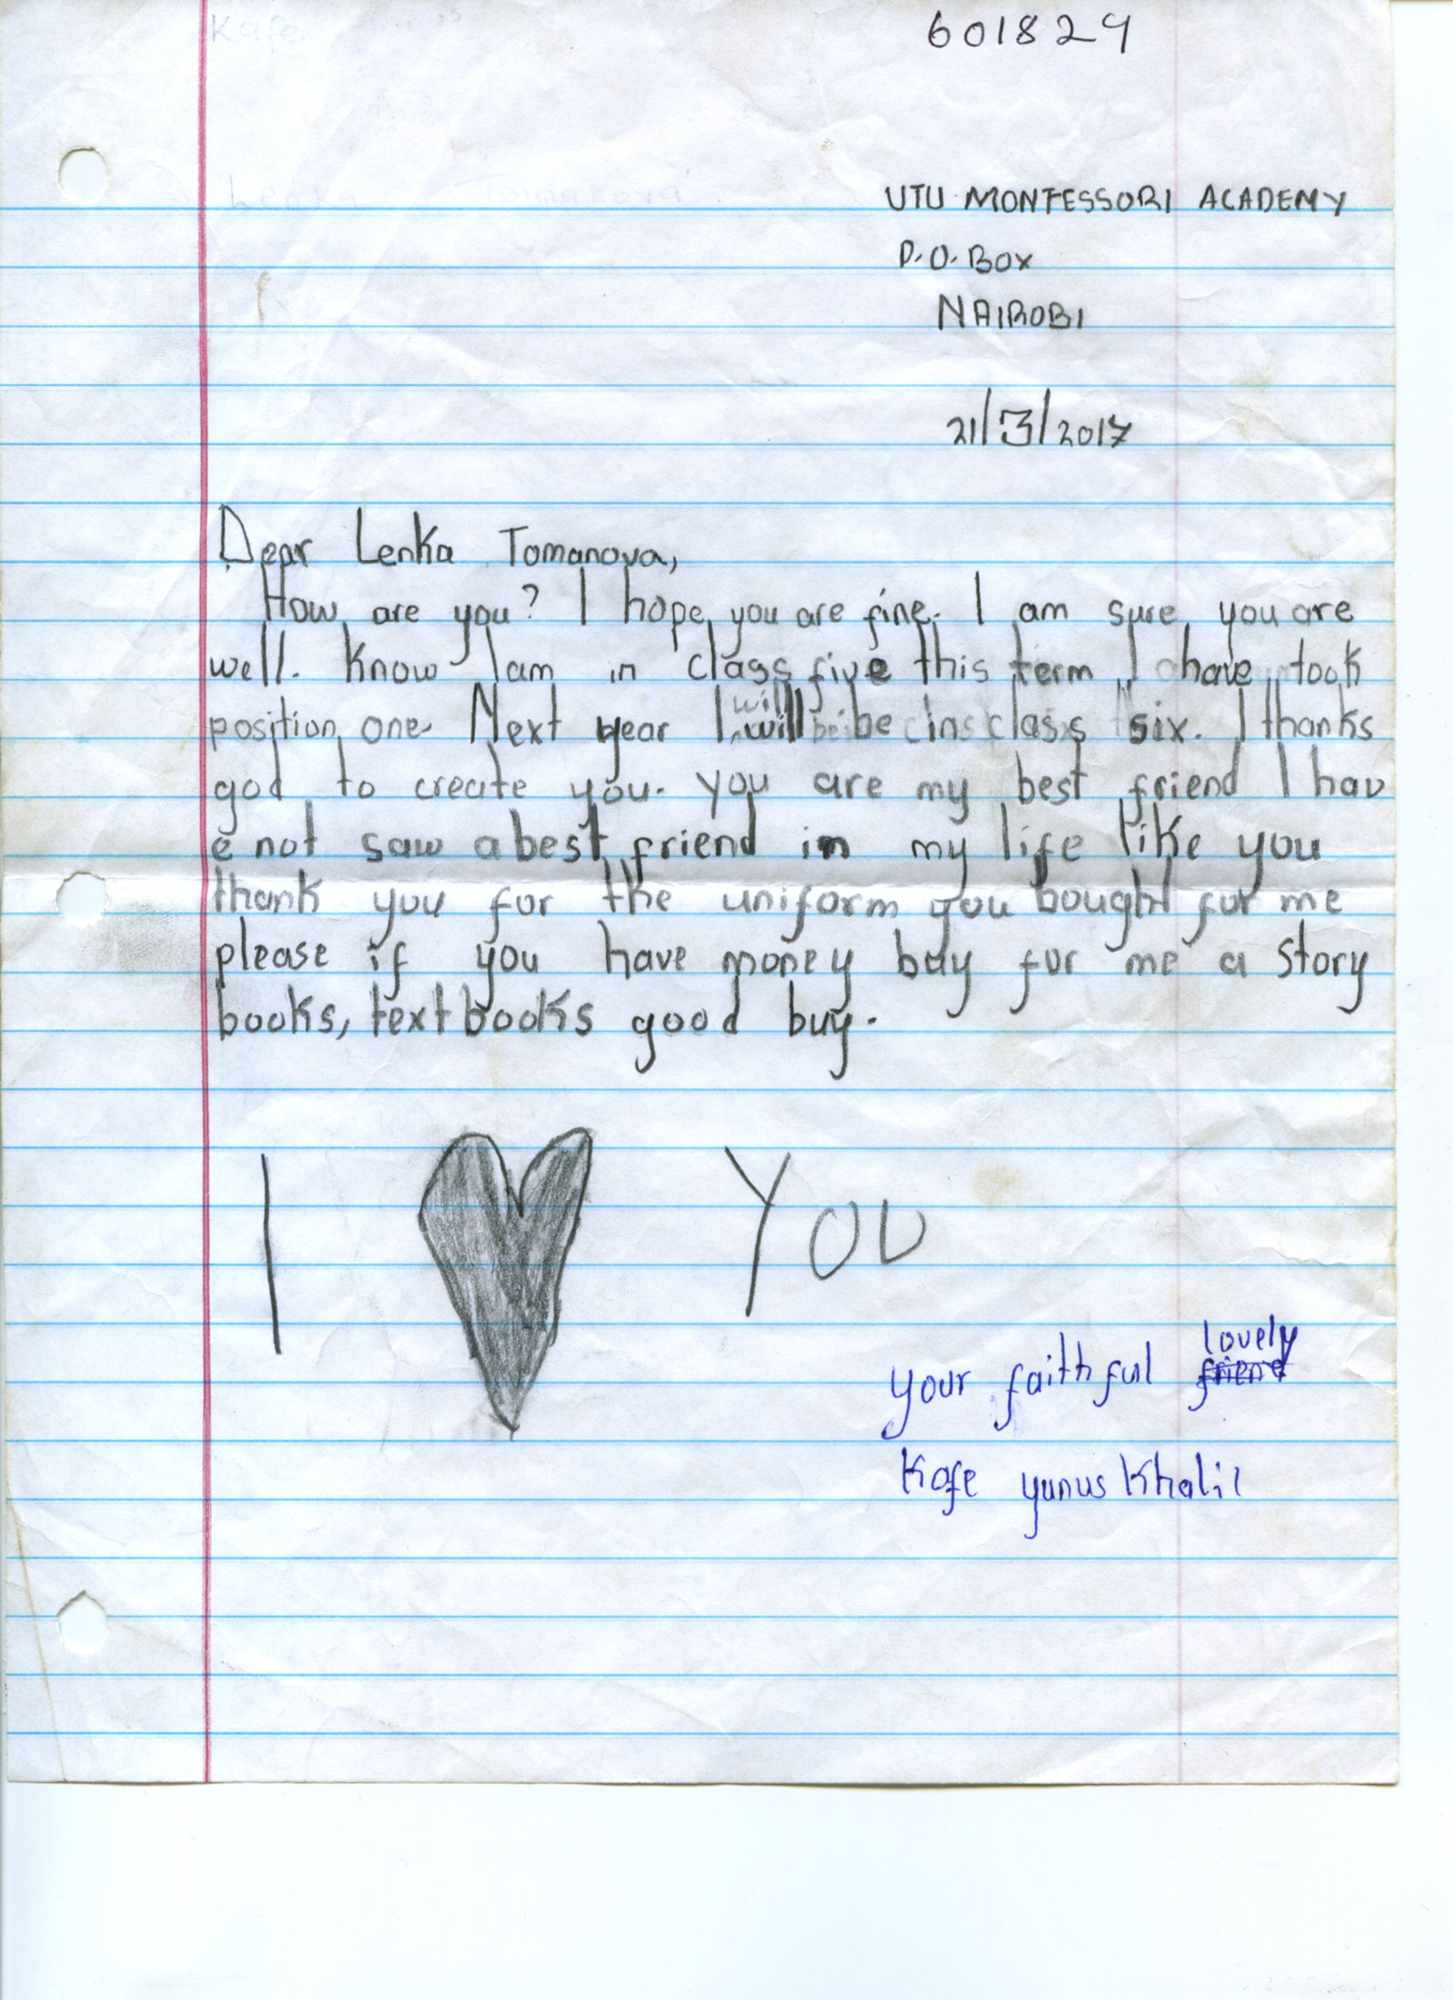 Kafe
601829
Lenka Tomanova
UTU MONTESSORI ACADEMY
P.O. BOX
NAIROBI
21/3/2017
Dear Lenka Tomanova,
How are you? I hope you are fine. I am sure you are
well. Know Iam in class five this term I have took
position one Next year I will will be in class six. I thanks
god to create you. you are my best friend I hav
e not saw a best friend in my life like you
thank you for the uniform you bought fur me
please if you have money buy fur me a story
books, textbooks good buy.
I YOU
lovely
your faithful friend
Kafe yunus Khalil